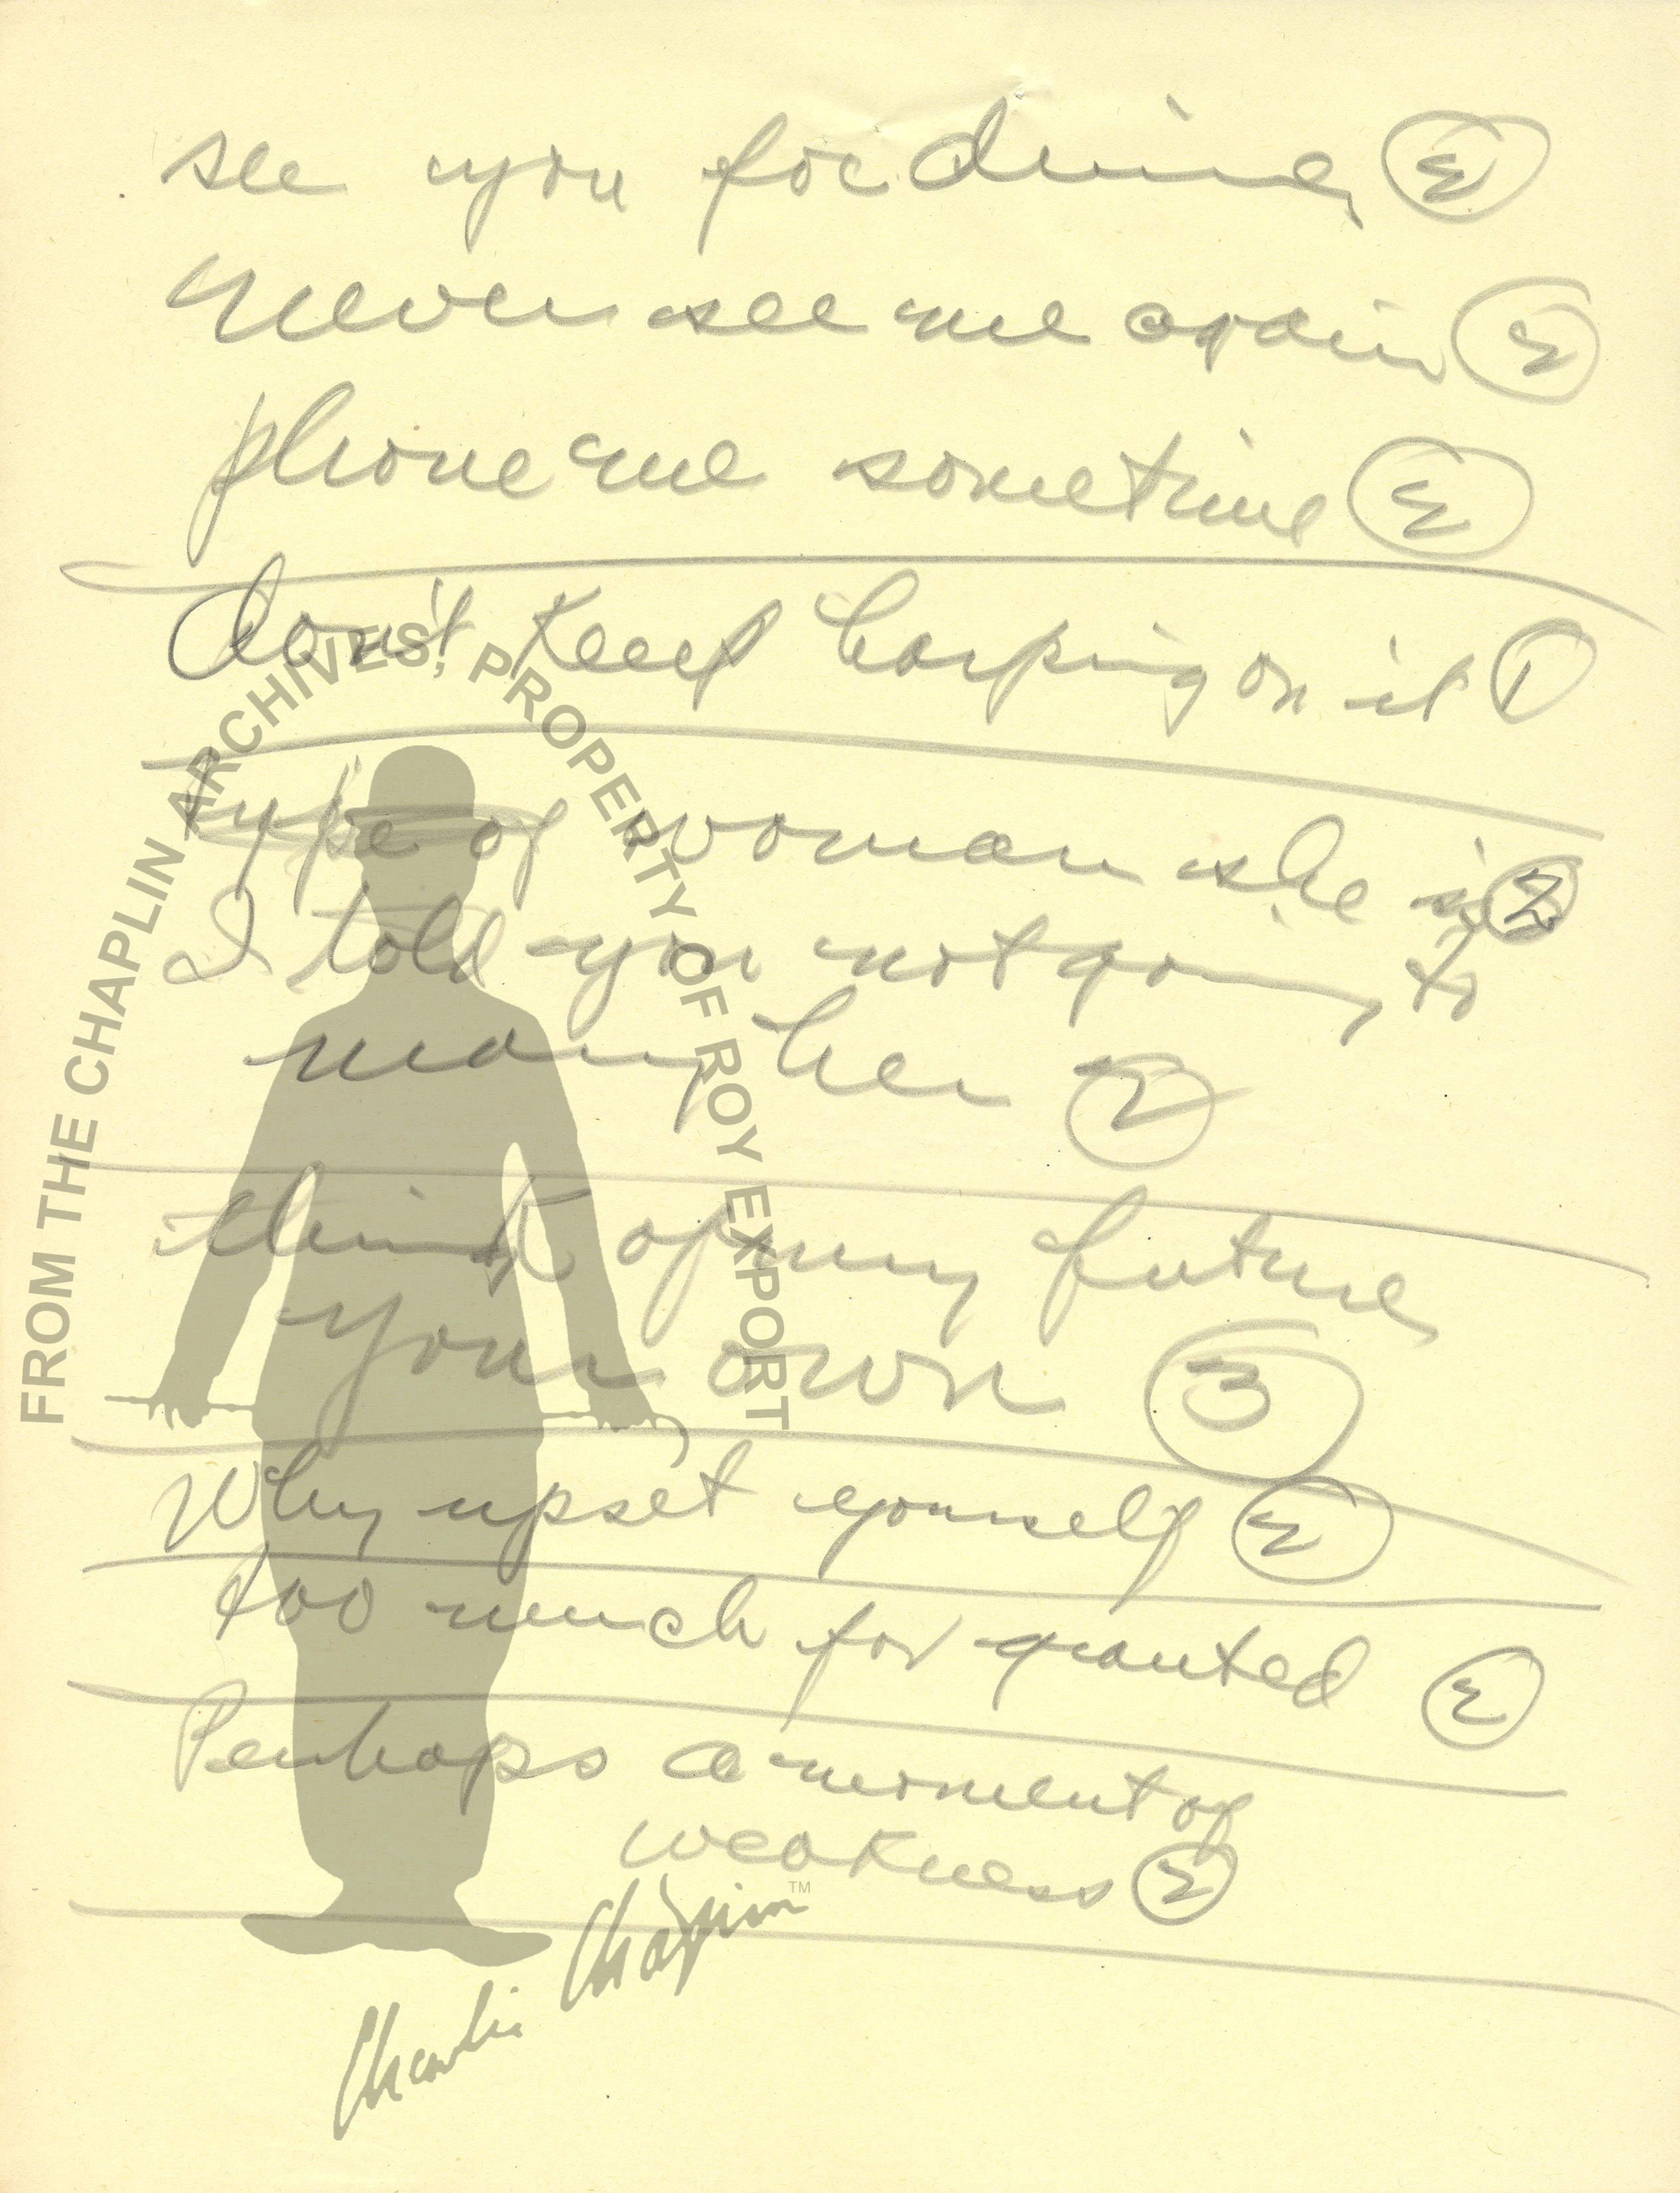 see you for dinner Σ
never see me again Σ
phone me sometime Σ
don't keep harping on it 1
type of woman she is 2
I told you not going to
marry her 2
think of my future
your own 3
Why upset yourself Σ
too much for granted Σ
Perhaps a moment of
weakness Σ
FROM THE CHAPLIN ARCHIVES, PROPERTY OF ROY EXPORT
Charlie Chaplin™